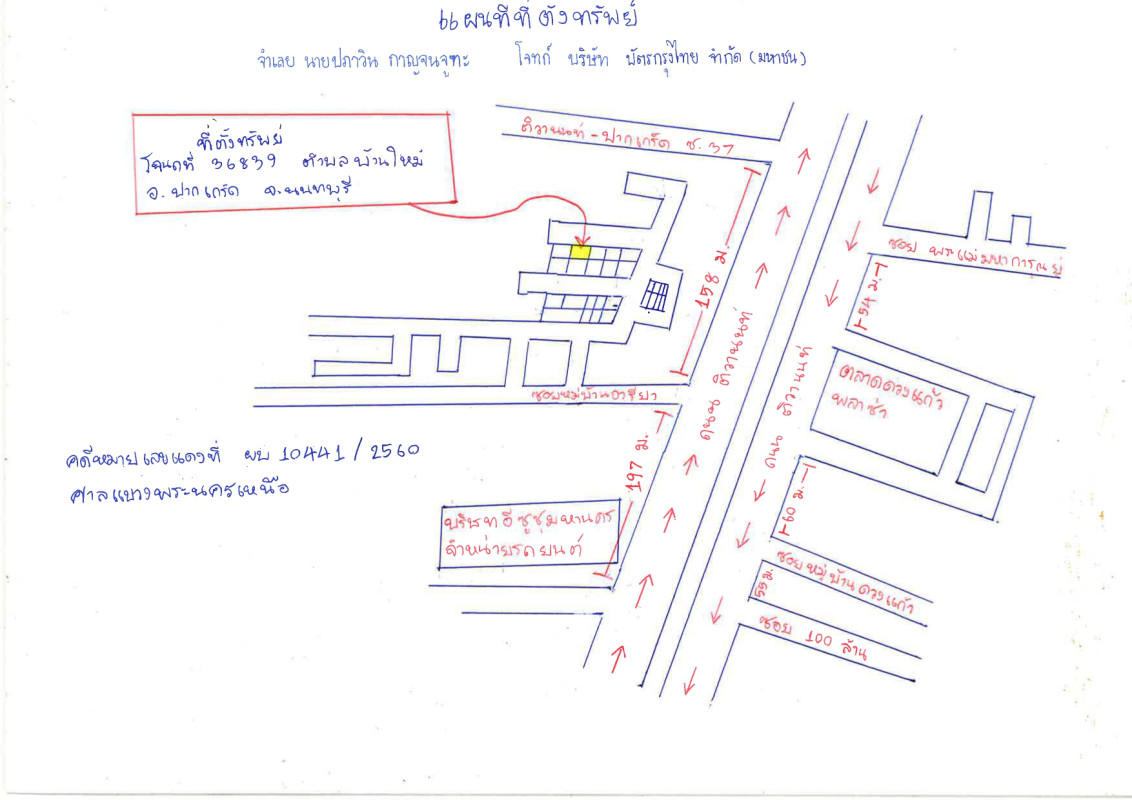 แผนที่ที่ตั้งทรัพย์
จำเลย นายปภาวิน กาญจนจูฑะ โจทก์ บริษัท บัตรกรุงไทย จำกัด (มหาชน)
ที่ตั้งทรัพย์
โฉนดที่ 36839 ตำบลบ้านใหม่
อ.ปากเกร็ด จ.นนทบุรี
ติวานนท์ - ปากเกร็ด ซ.37
158 ม.
ถนน ติวานนท์
ถนน ติวานนท์
ซอย พระแม่มหาการุณย์
54 ม.
ตลาดดวงแก้ว
พลาซ่า
ซอยหมู่บ้านอาชียา
197 ม.
60 ม.
คดีหมายเลขแดงที่ ผบ 10441/2560
ศาลแขวงพระนครเหนือ
บริษัทอีซูซุมหานคร
จำหน่ายรถยนต์
ซอยหมู่บ้านดวงแก้ว
55 ม.
ซอย 100 ล้าน